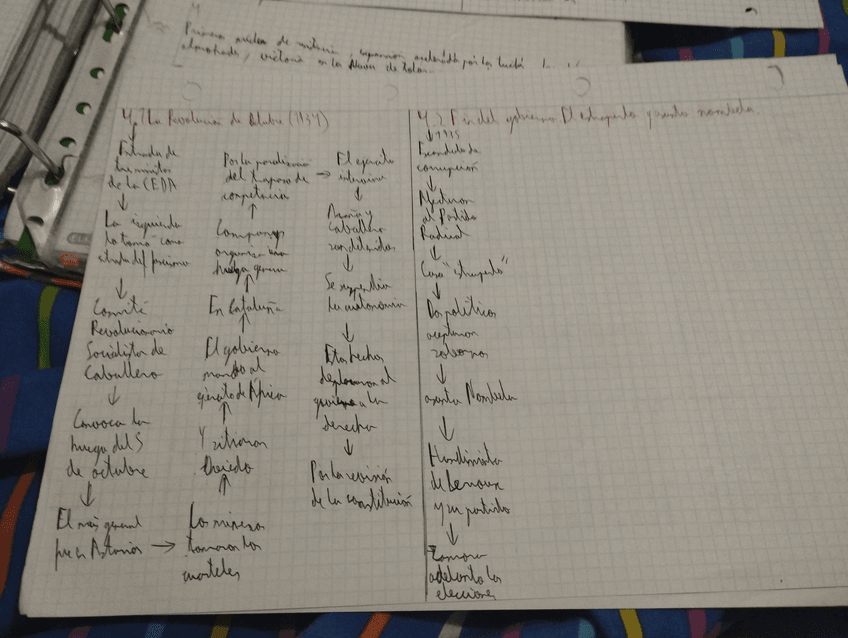 Primeros núcleos de resistencia, expansión acelerada por la lucha
almohade, victoria en las Navas de Tolosa.
4.1 La Revolución de Octubre (1934)
Entrada de
tres ministros
de la CEDA
↓
La izquierda
lo tomó como
↓
Comité
Revolucionario
Socialista de
Caballero
↓
Convoca la
huega del 5
de octubre
↓
El más general
fue en Asturias →
Los mineros
tomaron los
cuarteles
↑
Y sitiaron
Oviedo
↑
El gobierno
mandó al
ejército de África
↑
En Cataluña
↑
Companys
organiza una
huelga general
↑
Por la
del traspaso de
competencia
→ El ejército
interviene
↓
Azaña y
Caballero
son detenidos
↓
Se suspendió
la autonomía
↓
Estos hechos
desplazaron al
gobierno a la
derecha
↓
Por la revisión
de la constitución
4.2 Fin del gobierno El estraperlo y asunto nombela.
↓ 1935
Escándalo de
corrupción
↓
Afectaron
al Partido
Radical
↓
Caso "estraperlo"
↓
Dos políticos
aceptaron
sobornos
↓
asunto Nombela
↓
Hundimiento
de Lerroux
y su partido
↓
Zamora
adelantó las
elecciones